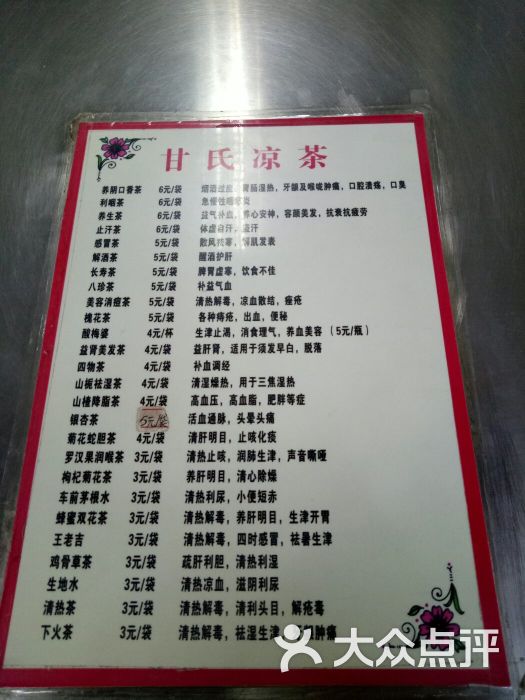 甘氏凉茶
养阴口香茶 6元/袋 烟酒过度，胃肠湿热，牙龈及喉咙肿痛，口腔溃疡，口臭
利咽茶 6元/袋 急慢性咽喉炎
养生茶 6元/袋 益气补血，养心安神，容颜美发，抗衰抗疲劳
止汗茶 6元/袋 体虚自汗，盗汗
感冒茶 5元/袋 散风祛寒，解肌发表
解酒茶 5元/袋 醒酒护肝
长寿茶 5元/袋 脾胃虚寒，饮食不佳
八珍茶 5元/袋 补益气血
美容消痘茶 5元/袋 清热解毒，凉血散结，痤疮
槐花茶 5元/袋 各种痔疮，出血，便秘
酸梅婆 4元/杯 生津止渴，消食理气，养血美容（5元/瓶）
益肾美发茶 4元/袋 益肝肾，适用于须发早白，脱落
四物茶 4元/袋 补血调经
山栀祛湿茶 4元/袋 清湿燥热，用于三焦湿热
山楂降脂茶 4元/袋 高血压，高血脂，肥胖等症
银杏茶 5元/袋 活血通脉，头晕头痛
菊花蛇胆茶 4元/袋 清肝明目，止咳化痰
罗汉果润喉茶 3元/袋 清热止咳，润肺生津，声音嘶哑
枸杞菊花茶 3元/袋 养肝明目，清心除燥
车前茅根水 3元/袋 清热利尿，小便短赤
蜂蜜双花茶 3元/袋 清热解毒，养肝明目，生津开胃
王老吉 3元/袋 清热解毒，四时感冒，祛暑生津
鸡骨草茶 3元/袋 疏肝利胆，清热利湿
生地水 3元/袋 清热凉血，滋阴利尿
清热茶 3元/袋 清热解毒，清利头目，解疮毒
下火茶 3元/袋 清热解毒，祛湿生津，肿痛
大众点评